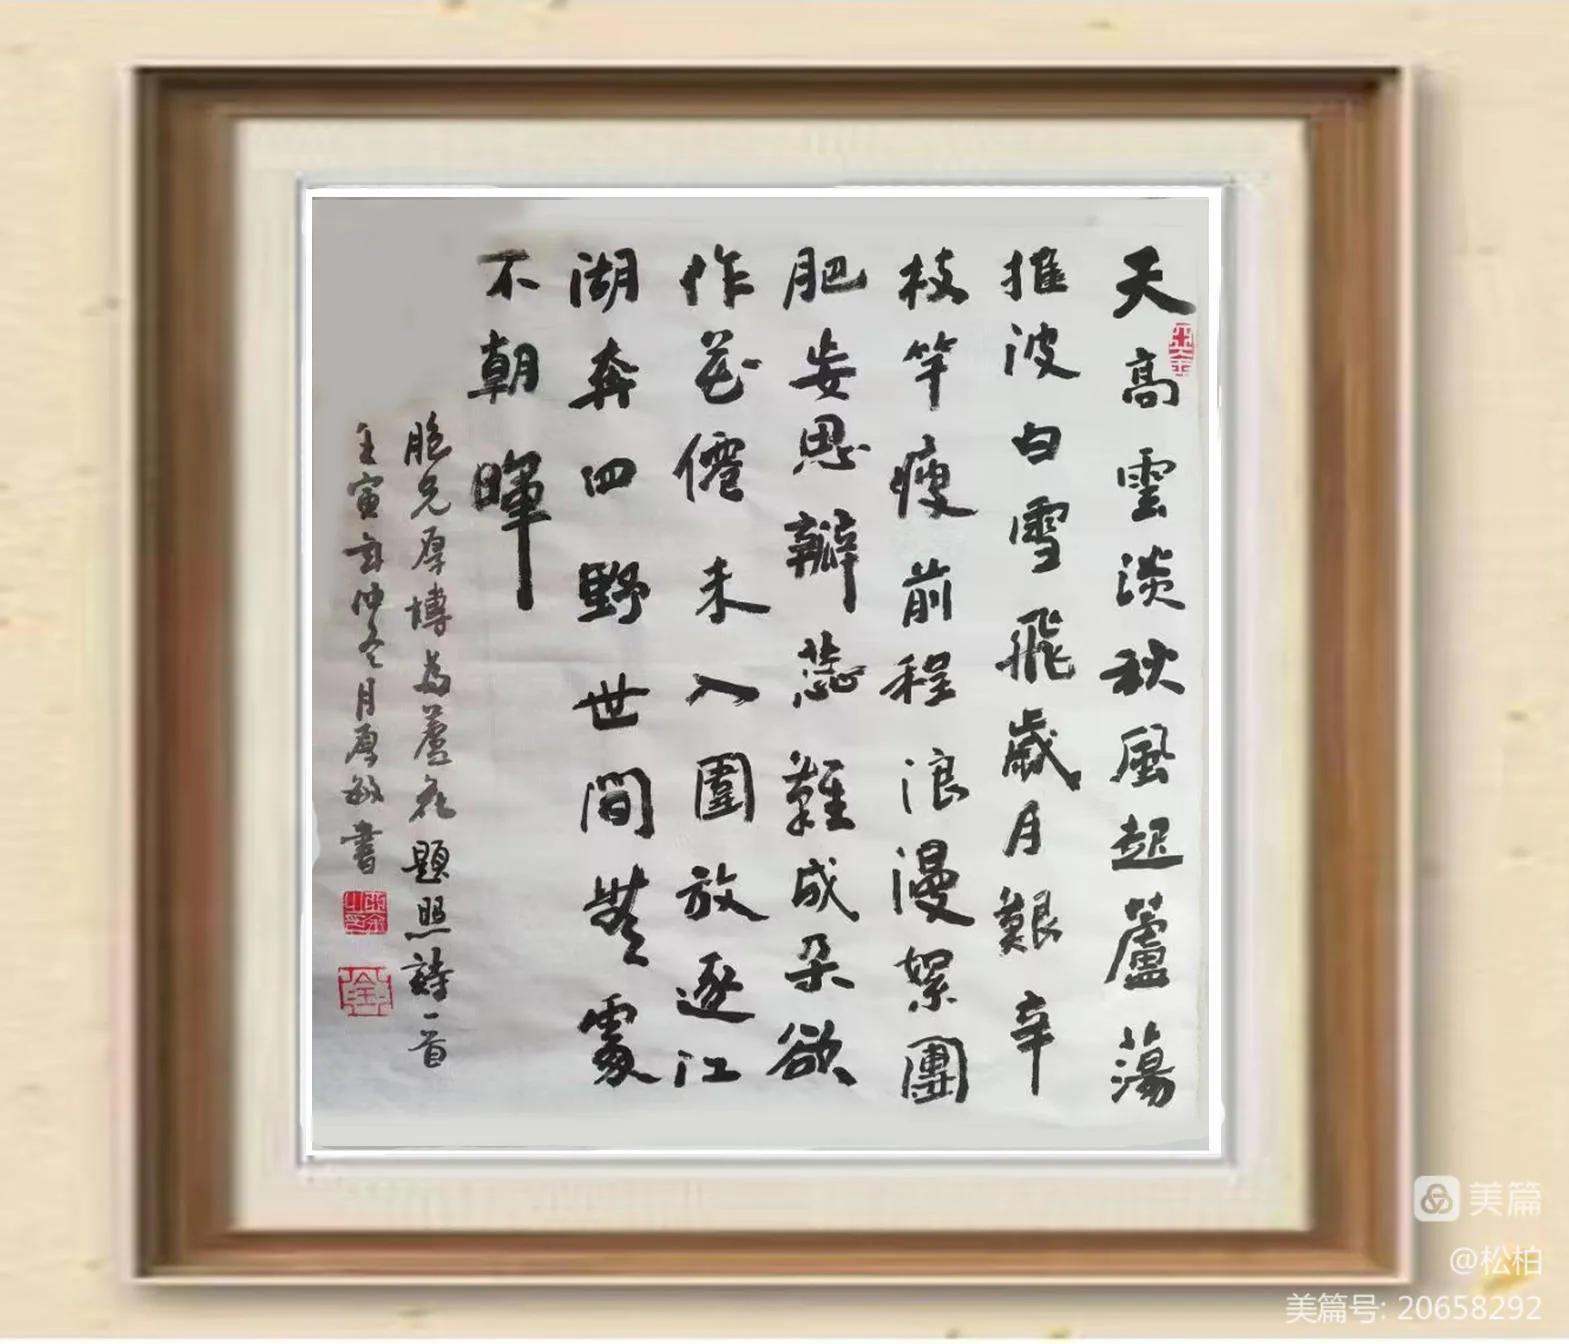 天高雲淡秋風起蘆蕩
推波白雪飛歲月艱辛
枝竿瘦前程浪漫絮團
肥安思瓣蕊難成朵欲
作花僊未入圍放逐江
湖奔四野世間無處
不朝暉
胞兄厚博為蘆花題照詩一首
壬寅年仲冬月厚敏書
美篇
@松柏
美篇号: 20658292